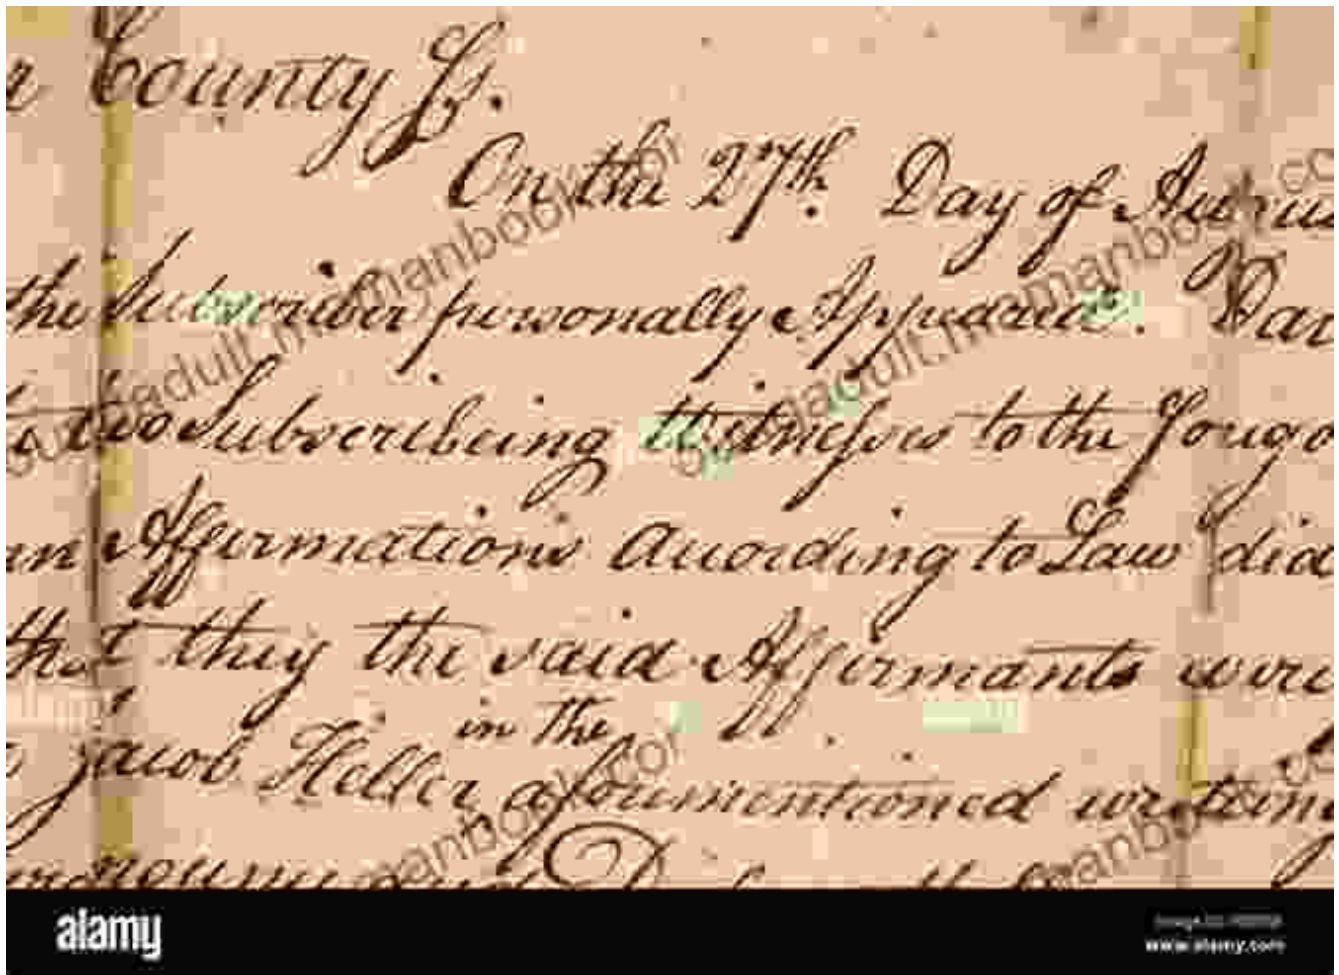 County Ss.
On the 27th. Day of Augus
the Subscriber personally Appeared. Dav
two Subscribing Witnesses to the Forego
an Affirmations According to Law did
that they the said Affirmants were
in the
Jacob Heller aforementioned writing
alamy
www.alamy.com